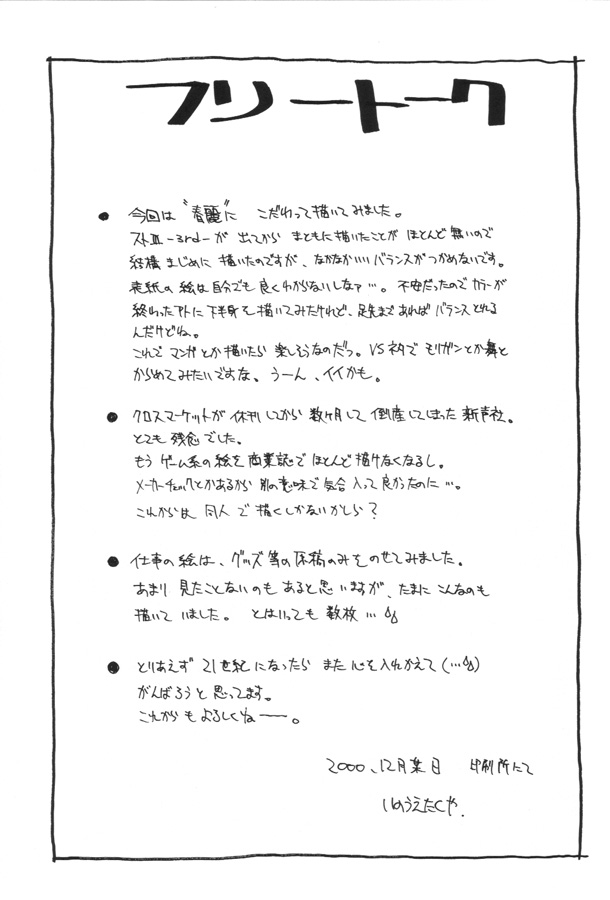 フリートーク
● 今回は〝春麗〟に こだわって描いてみました。
ストⅢ-3rd-が 出てから まともに描いたことが ほとんど無いので
結構 まじめに 描いたのですが、なかなかいいバランスがつかめないです。
表紙の絵は自分でも良くわからないしなァ…。 不安だったので カラーが
終わったアトに下半身を描いてみたけれど、足先まであればバランスとれる
んだけどね。
これで マンガとか描いたら 楽しそうなのだっ。VSネタで モリガンとか舞と
からめてみたいですな、うーん、イイかも。
● クロスマーケットが 休刊してから 数ヶ月して 倒産してしまった 新声社。
とても残念でした。
もう ゲーム系の絵を商業誌で ほとんど描けなくなるし。
メーカーチェックとかあるから 別の意味で気合入って良かったのに…。
これからは 同人で 描くしかないかしら?
● 仕事の絵は、グッズ等の原稿のみをのせてみました。
あまり 見たことないのも あると思いますが、たまに こんなのも
描いて いました。 とはいっても 数枚…
● とりあえず 21世紀になったら また心を入れかえて(…)
がんばろうと思ってます。
これからも よろしくね――。
2000、12月某日 印刷所にて
いのうえたくや.